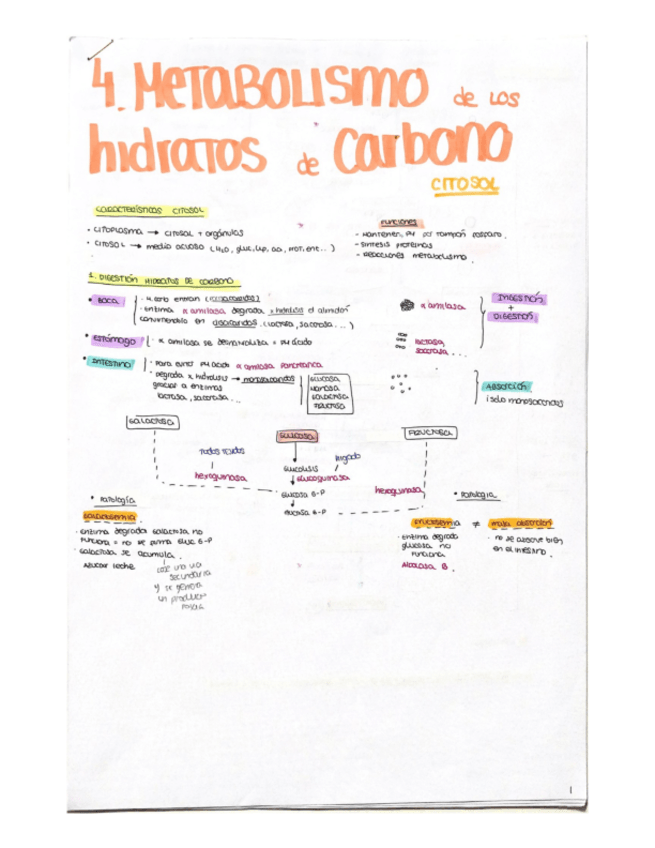 4. METABOLISMO de los
hidratos de carbono
CITOSOL
CARACTERÍSTICAS CITOSOL
· CITOPLASMA → CITOSOL + orgánulos
· CITOSOL → medio acuoso (H2O, gluc, Lip, aa, prot, enz...)
FUNCIONES
- Mantener PH por tampón fosfato.
- Síntesis proteínas
- Reacciones metabolismo.
1. DIGESTIÓN HIDRATOS DE CARBONO
• BOCA
· enzima α amilasa degrada x hidrólisis el almidón
convirtiendolo en disacáridos. (lactosa, sacarosa...)
α amilasa
INGESTIÓN
+
DIGESTIÓN
• ESTÓMAGO
· α amilasa se desnaturaliza = PH ácido
lactosa,
sacarosa...
• INTESTINO
· Para evitar PH ácido α amilasa pancreática
· degrada x hidrólisis → monosacáridos
gracias a enzimas
lactasa, sacarasa...
GLUCOSA
GALACTOSA
FRUCTOSA
ABSORCIÓN
¡solo monosacáridos
GALACTOSA
GLUCOSA
FRUCTOSA
Todos tejidos
hígado
GLUCOLISIS
hexoquinasa
glucoquinasa
GLUCOSA 6-P
hexoquinasa
FRUCOSA 6-P
• Patología
• Patología
GALACTOSEMIA
· enzima degrada galactosa no
funciona = no se forma gluc 6-P
· galactosa se acumula.
Azúcar leche
coge una vía
secundaria
y se genera
un producto
≠ mala absorción
· enzima degrada
no
funciona
Aldolasa B.
· no se absorve bien
en el intestino.
1